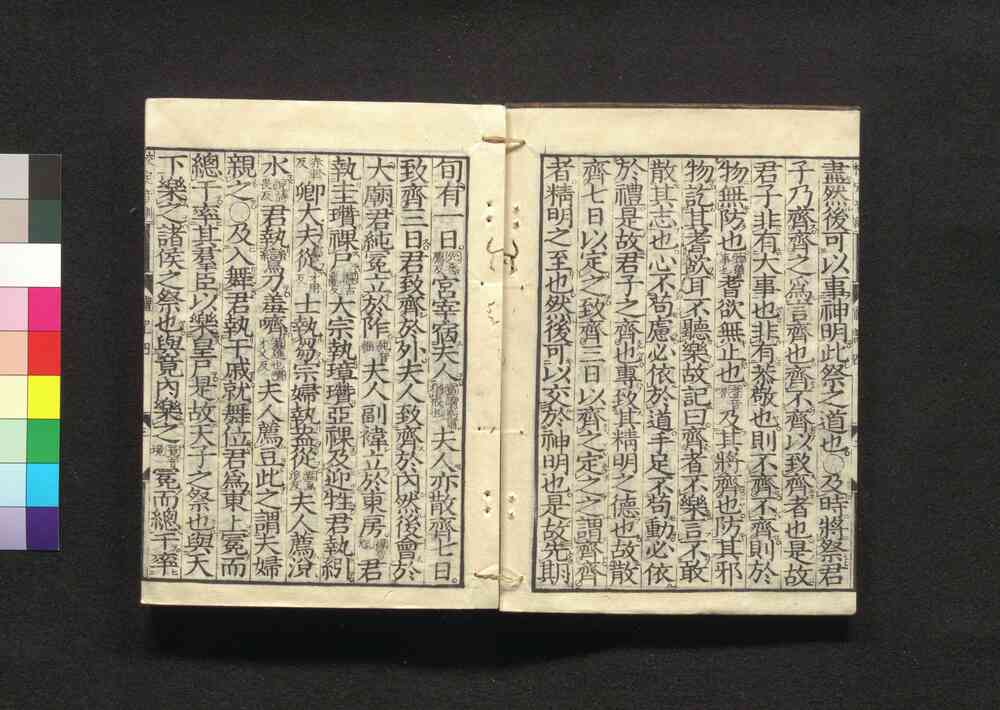 盡然後可以事神明此祭之道也○及時將祭君
子乃齊齊之爲言齊也齊不齊以致齊者也是故
君子非有大事也非有恭敬也則不齊不齊則於
物無防也耆欲無止也及其將齊也防其邪
物訖其耆欲耳不聽樂故記曰齊者不樂言不敢
散其志也心不苟慮必依於道手足不苟動必依
於禮是故君子之齊也專致其精明之德也故散
齊七日以定之致齊三日以齊之定之之謂齊齊
者精明之至也然後可以交於神明也是故先期
旬有一日宮宰宿夫人夫人亦散齊七日
致齊三日君致齊於外夫人致齊於內然後會於
大廟君純冕立於阼夫人副褘立於東房君
執圭瓚祼尸大宗執璋瓚亞祼及迎牲君執紖
卿大夫從士執芻宗婦執盎從夫人薦涗
水君執鸞刀羞嚌夫人薦豆此之謂夫婦
親之○及入舞君執干戚就舞位君爲東上冕而
總干率其羣臣以樂皇尸是故天子之祭也與天
下樂之諸侯之祭也與竟內樂之冕而總干率